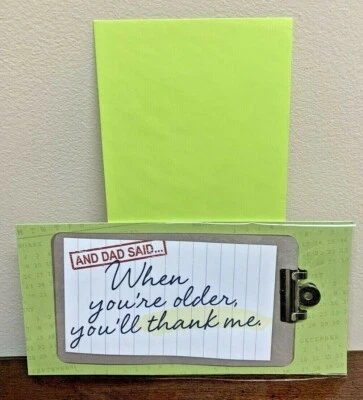 AND DAD SAID...
When
you're older,
you'll thank me.